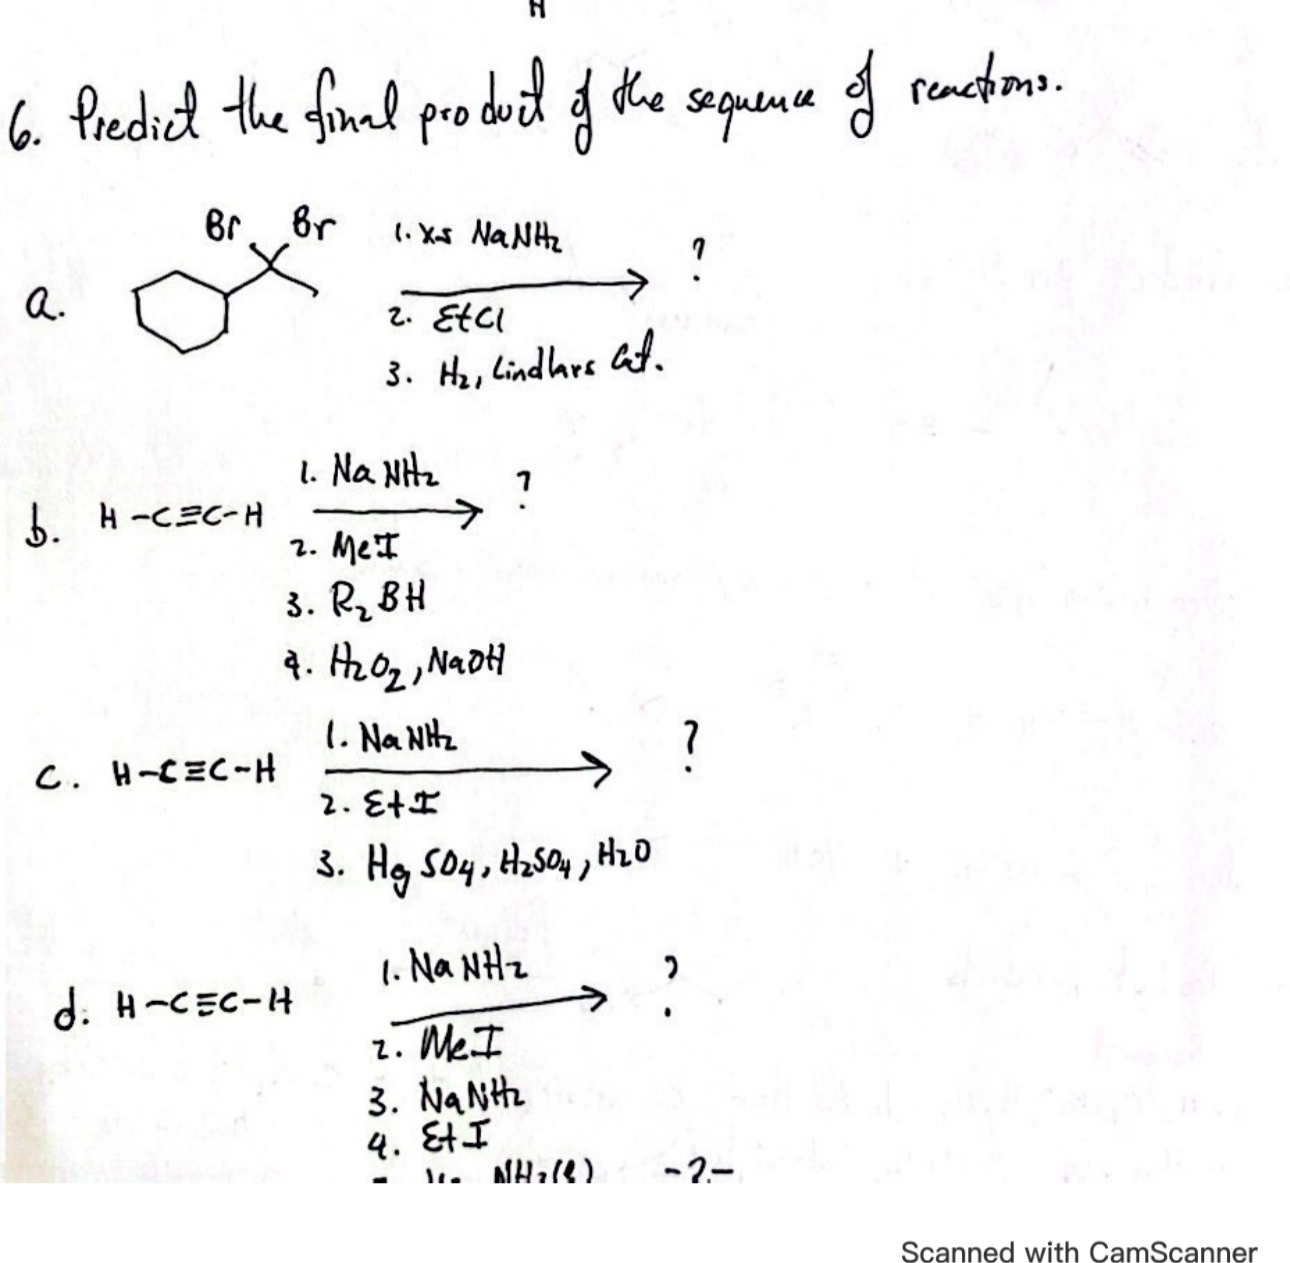 H
6. Predict the final product of the sequence of reactions.
Br Br
a.
1. xs NaNH2
?
2. EtCl
3. H2, Lindlars Cat.
b. H-C≡C-H
1. NaNH2
?
2. MeI
3. R2BH
4. H2O2, NaOH
c. H-C≡C-H
1. NaNH2
?
2. EtI
3. HgSO4, H2SO4, H2O
d. H-C≡C-H
1. NaNH2
?
2. MeI
3. NaNH2
4. EtI
NH3(l)
-2-
Scanned with CamScanner